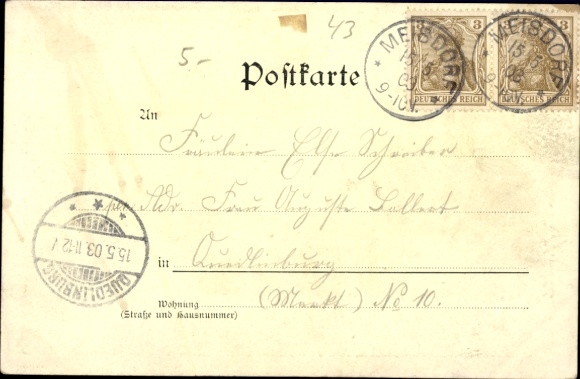 43
5.-
3 3
MEISDORF
15 5
03
9-10V.
DEUTSCHES REICH
MEISDORF
15 5
03
9-10V.
DEUTSCHES REICH
Postkarte
An
Fräulein Else Schreiber
Adr. Frau Auguste
in Quedlinburg
(Markt) No 10.
Wohnung
(Straße und Hausnummer)
QUEDLINBURG
15.5.03. 11-12